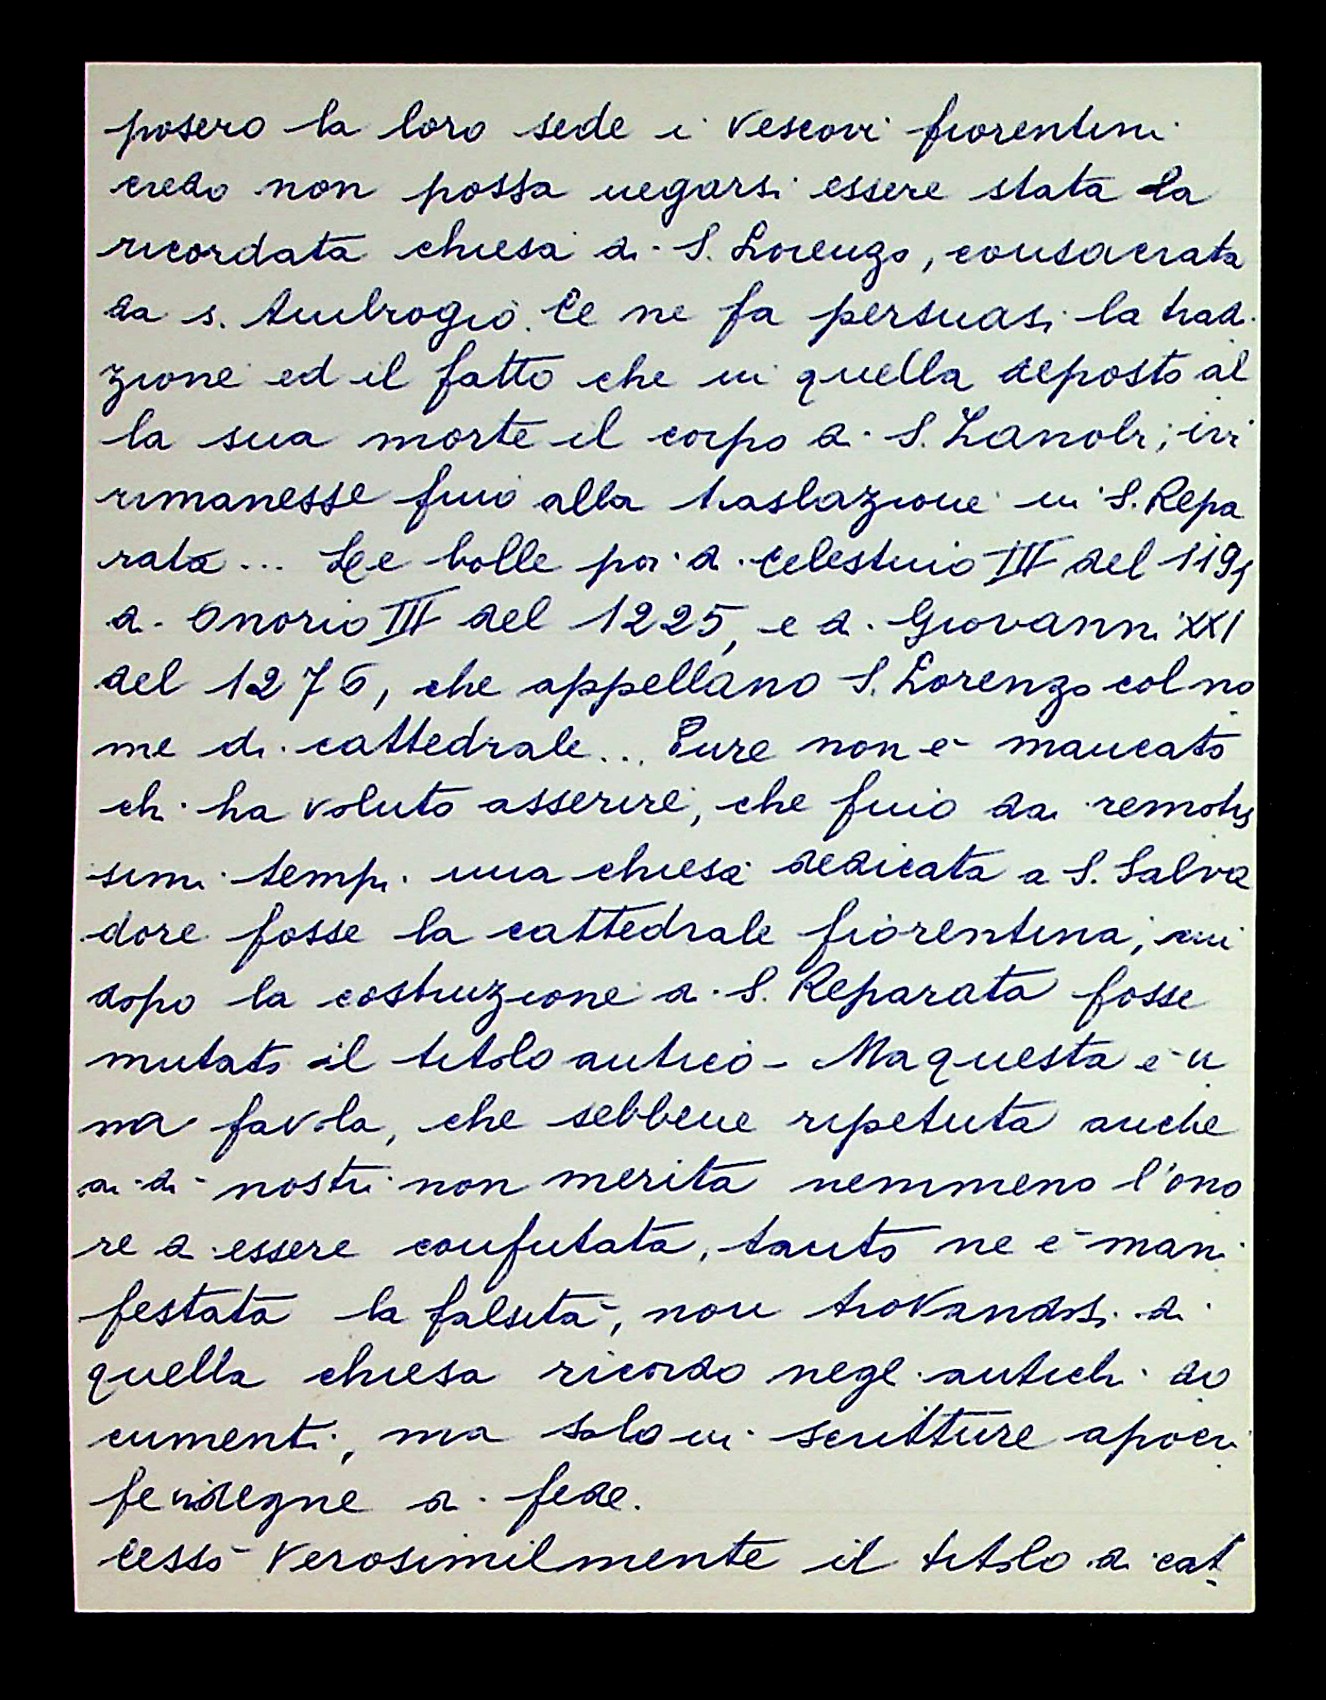 posero la loro sede i Vescovi fiorentini
credo non possa negarsi essere stata la
ricordata chiesa di S. Lorenzo, consacrata
da s. Ambrogio. Ce ne fa persuasi la tradi
zione ed il fatto che in quella deposto al
la sua morte il corpo di S. Zanobi, ivi
rimanesse fino alla traslazione in S. Repa
rata... Le bolle poi di Celestino III del 1191
di Onorio III del 1225, e di Giovanni XXI
del 1276, che appellano S. Lorenzo col no
me di cattedrale... Pure non è mancato
chi ha voluto asserire, che fino dai remotis
simi tempi una chiesa dedicata a S. Salva
dore fosse la cattedrale fiorentina, cui
dopo la costruzione di S. Reparata fosse
mutato il titolo antico - Ma questa è u
na favola, che sebbene ripetuta anche
ai dì nostri non merita nemmeno l'ono
re di essere confutata, tanto ne è mani
festata la falsità, non trovandosi di
quella chiesa ricordo negli antichi do
cumenti, ma solo in scritture apocri
fe indegne di fede.
Cessò verosimilmente il titolo di cat